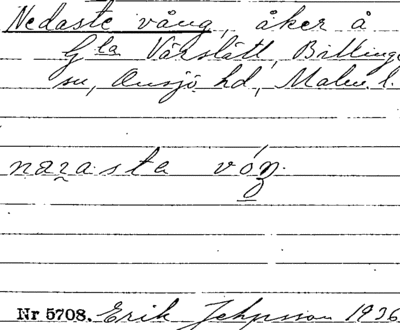 Nedaste vång, åker å
Gla Vårslätt, Billinge
sn, Onsjö hd, Malm. l.
narasta vóŋ.
Nr 5708. Erik Jeppsson 1936